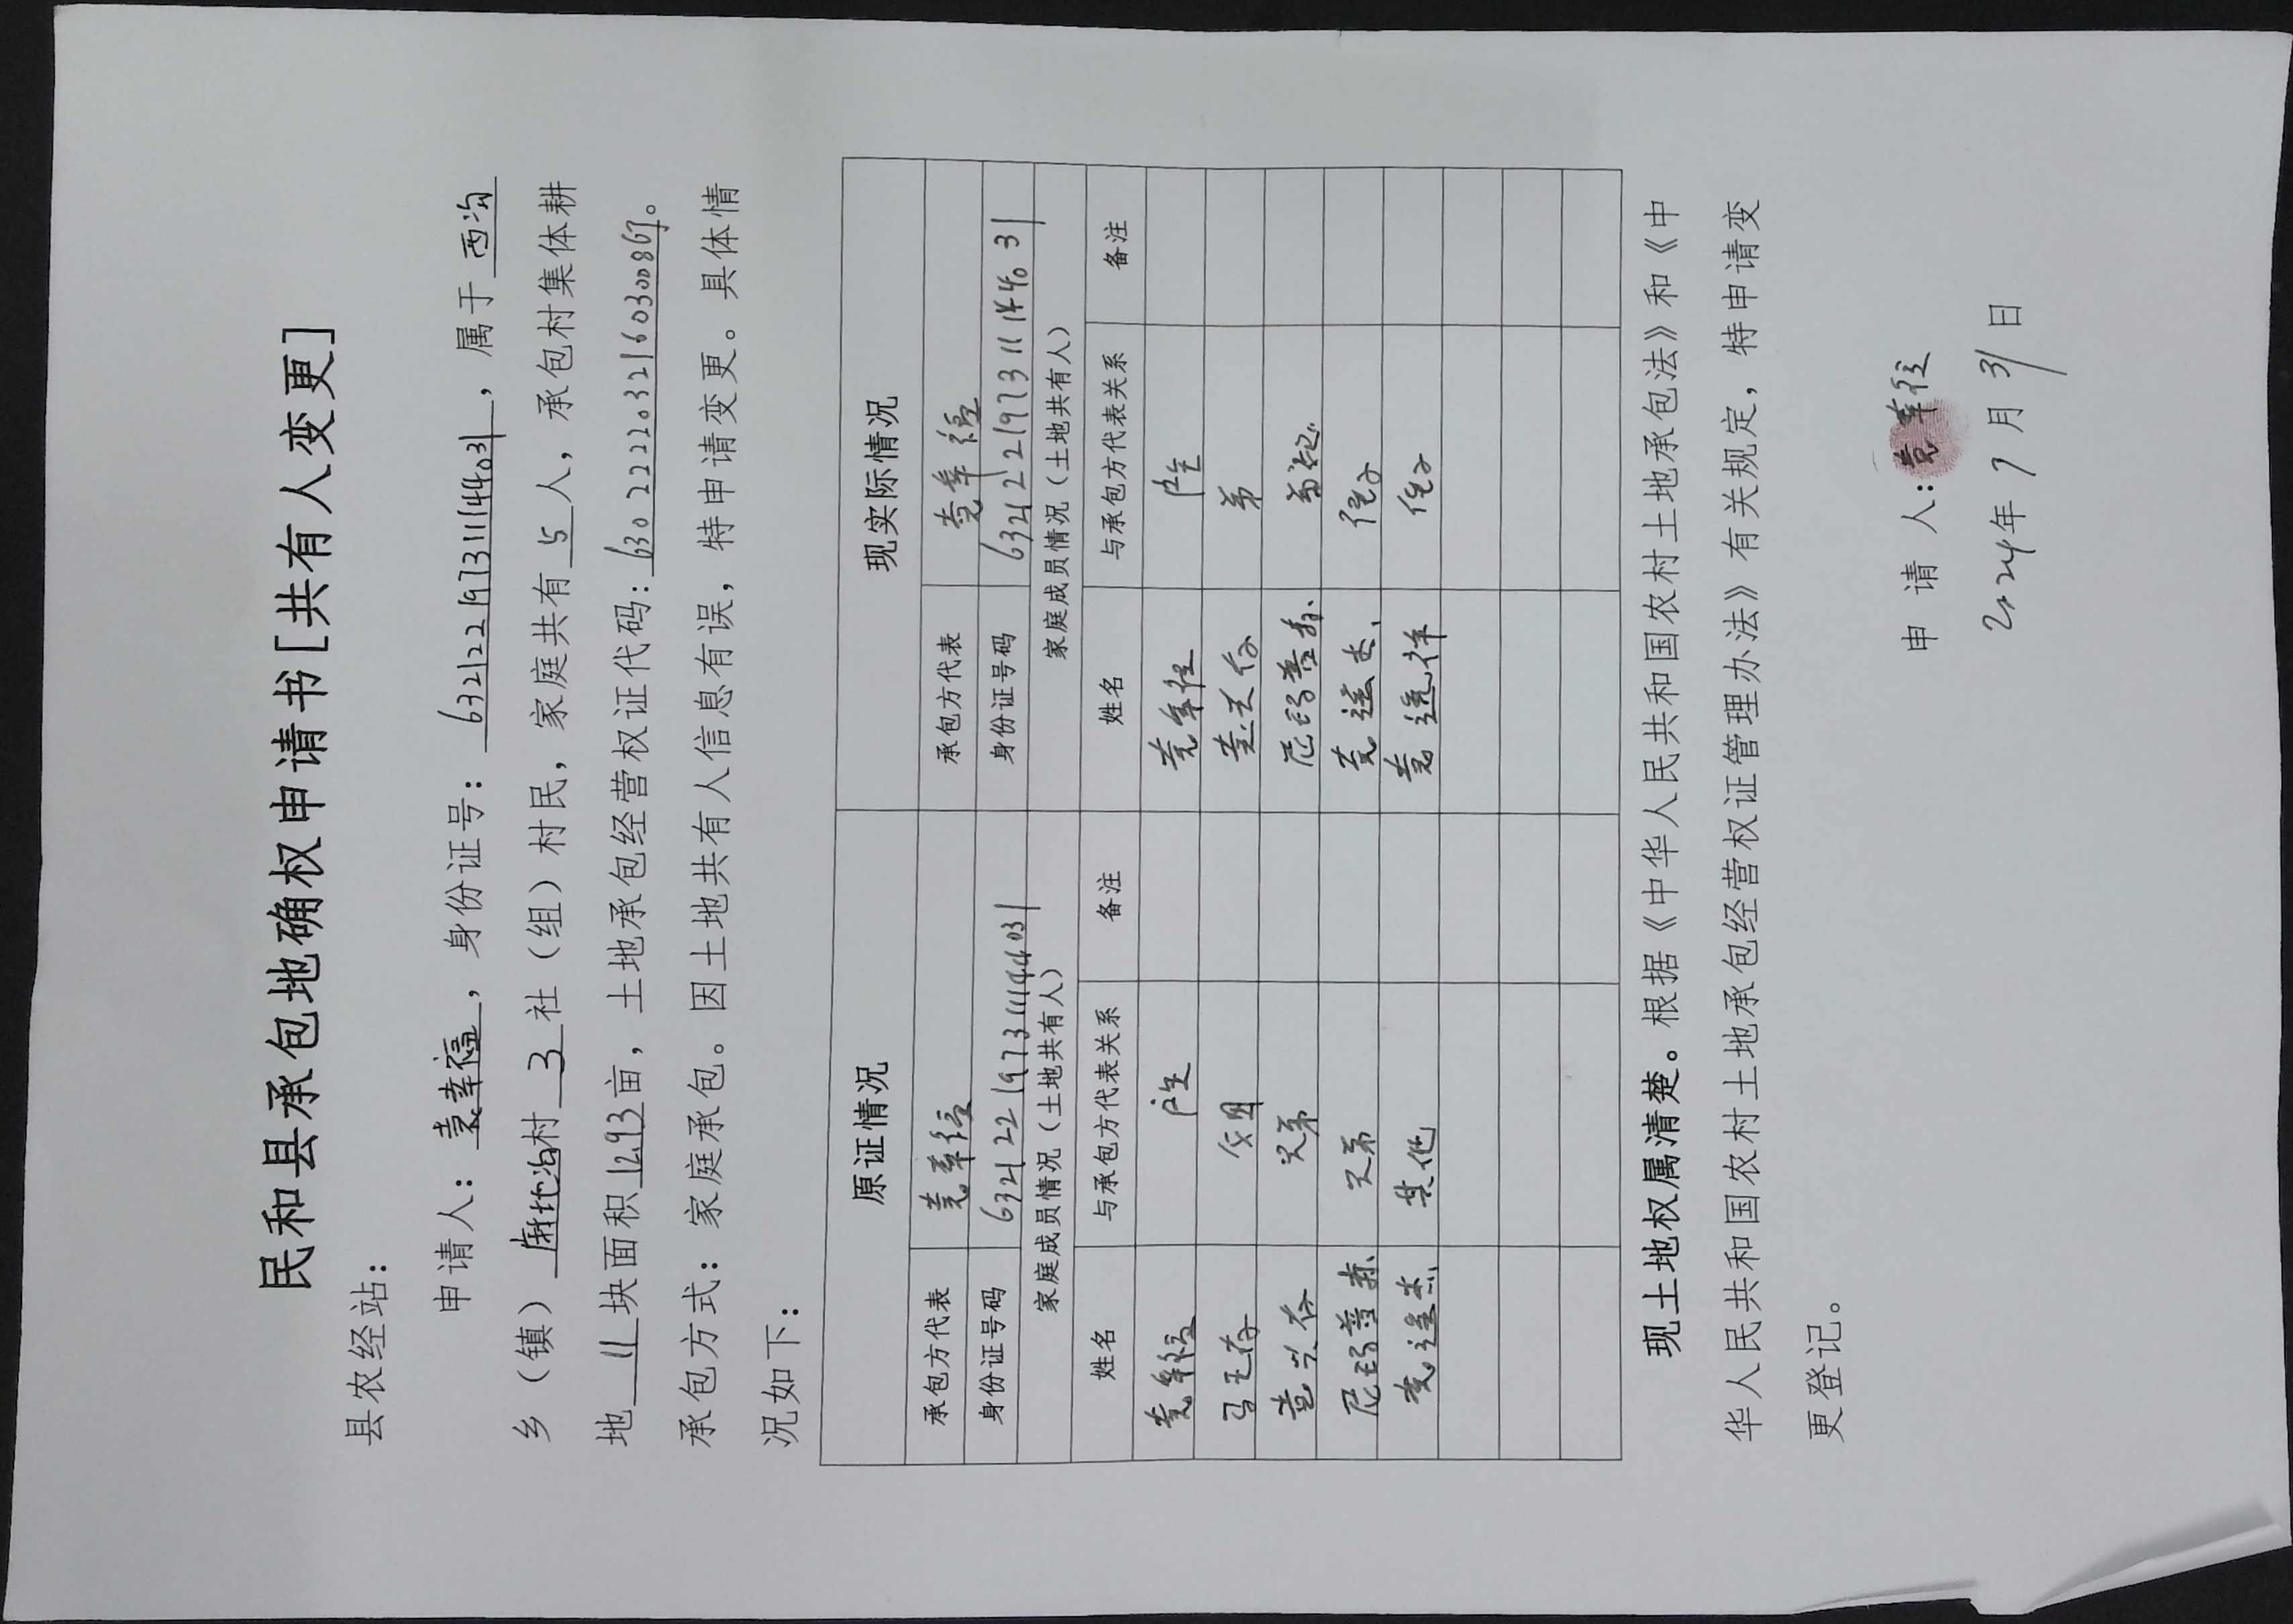 民和县承包地确权申请书[共有人变更]
县农经站：
申请人：袁幸福，身份证号：632122197311144031，属于西沟
乡（镇）麻地沟村 3 社（组）村民，家庭共有 5 人，承包村集体耕
地 11 块面积 12.93 亩，土地承包经营权证代码：。
承包方式：家庭承包。因土地共有人信息有误，特申请变更。具体情
况如下：
原证情况 现实际情况
承包方代表 袁幸福 承包方代表 袁幸福
身份证号码 632122197311144031 身份证号码 632122197311144031
家庭成员情况（土地共有人） 家庭成员情况（土地共有人）
姓名 与承包方代表关系 备注 姓名 与承包方代表关系 备注
袁幸福 户主 袁幸福 户主
父母 弟
兄弟
兄弟 侄子
其他 侄子
现土地权属清楚。根据《中华人民共和国农村土地承包法》和《中
华人民共和国农村土地承包经营权证管理办法》有关规定，特申请变
更登记。
申 请 人：袁幸福
2024年 7 月 31 日